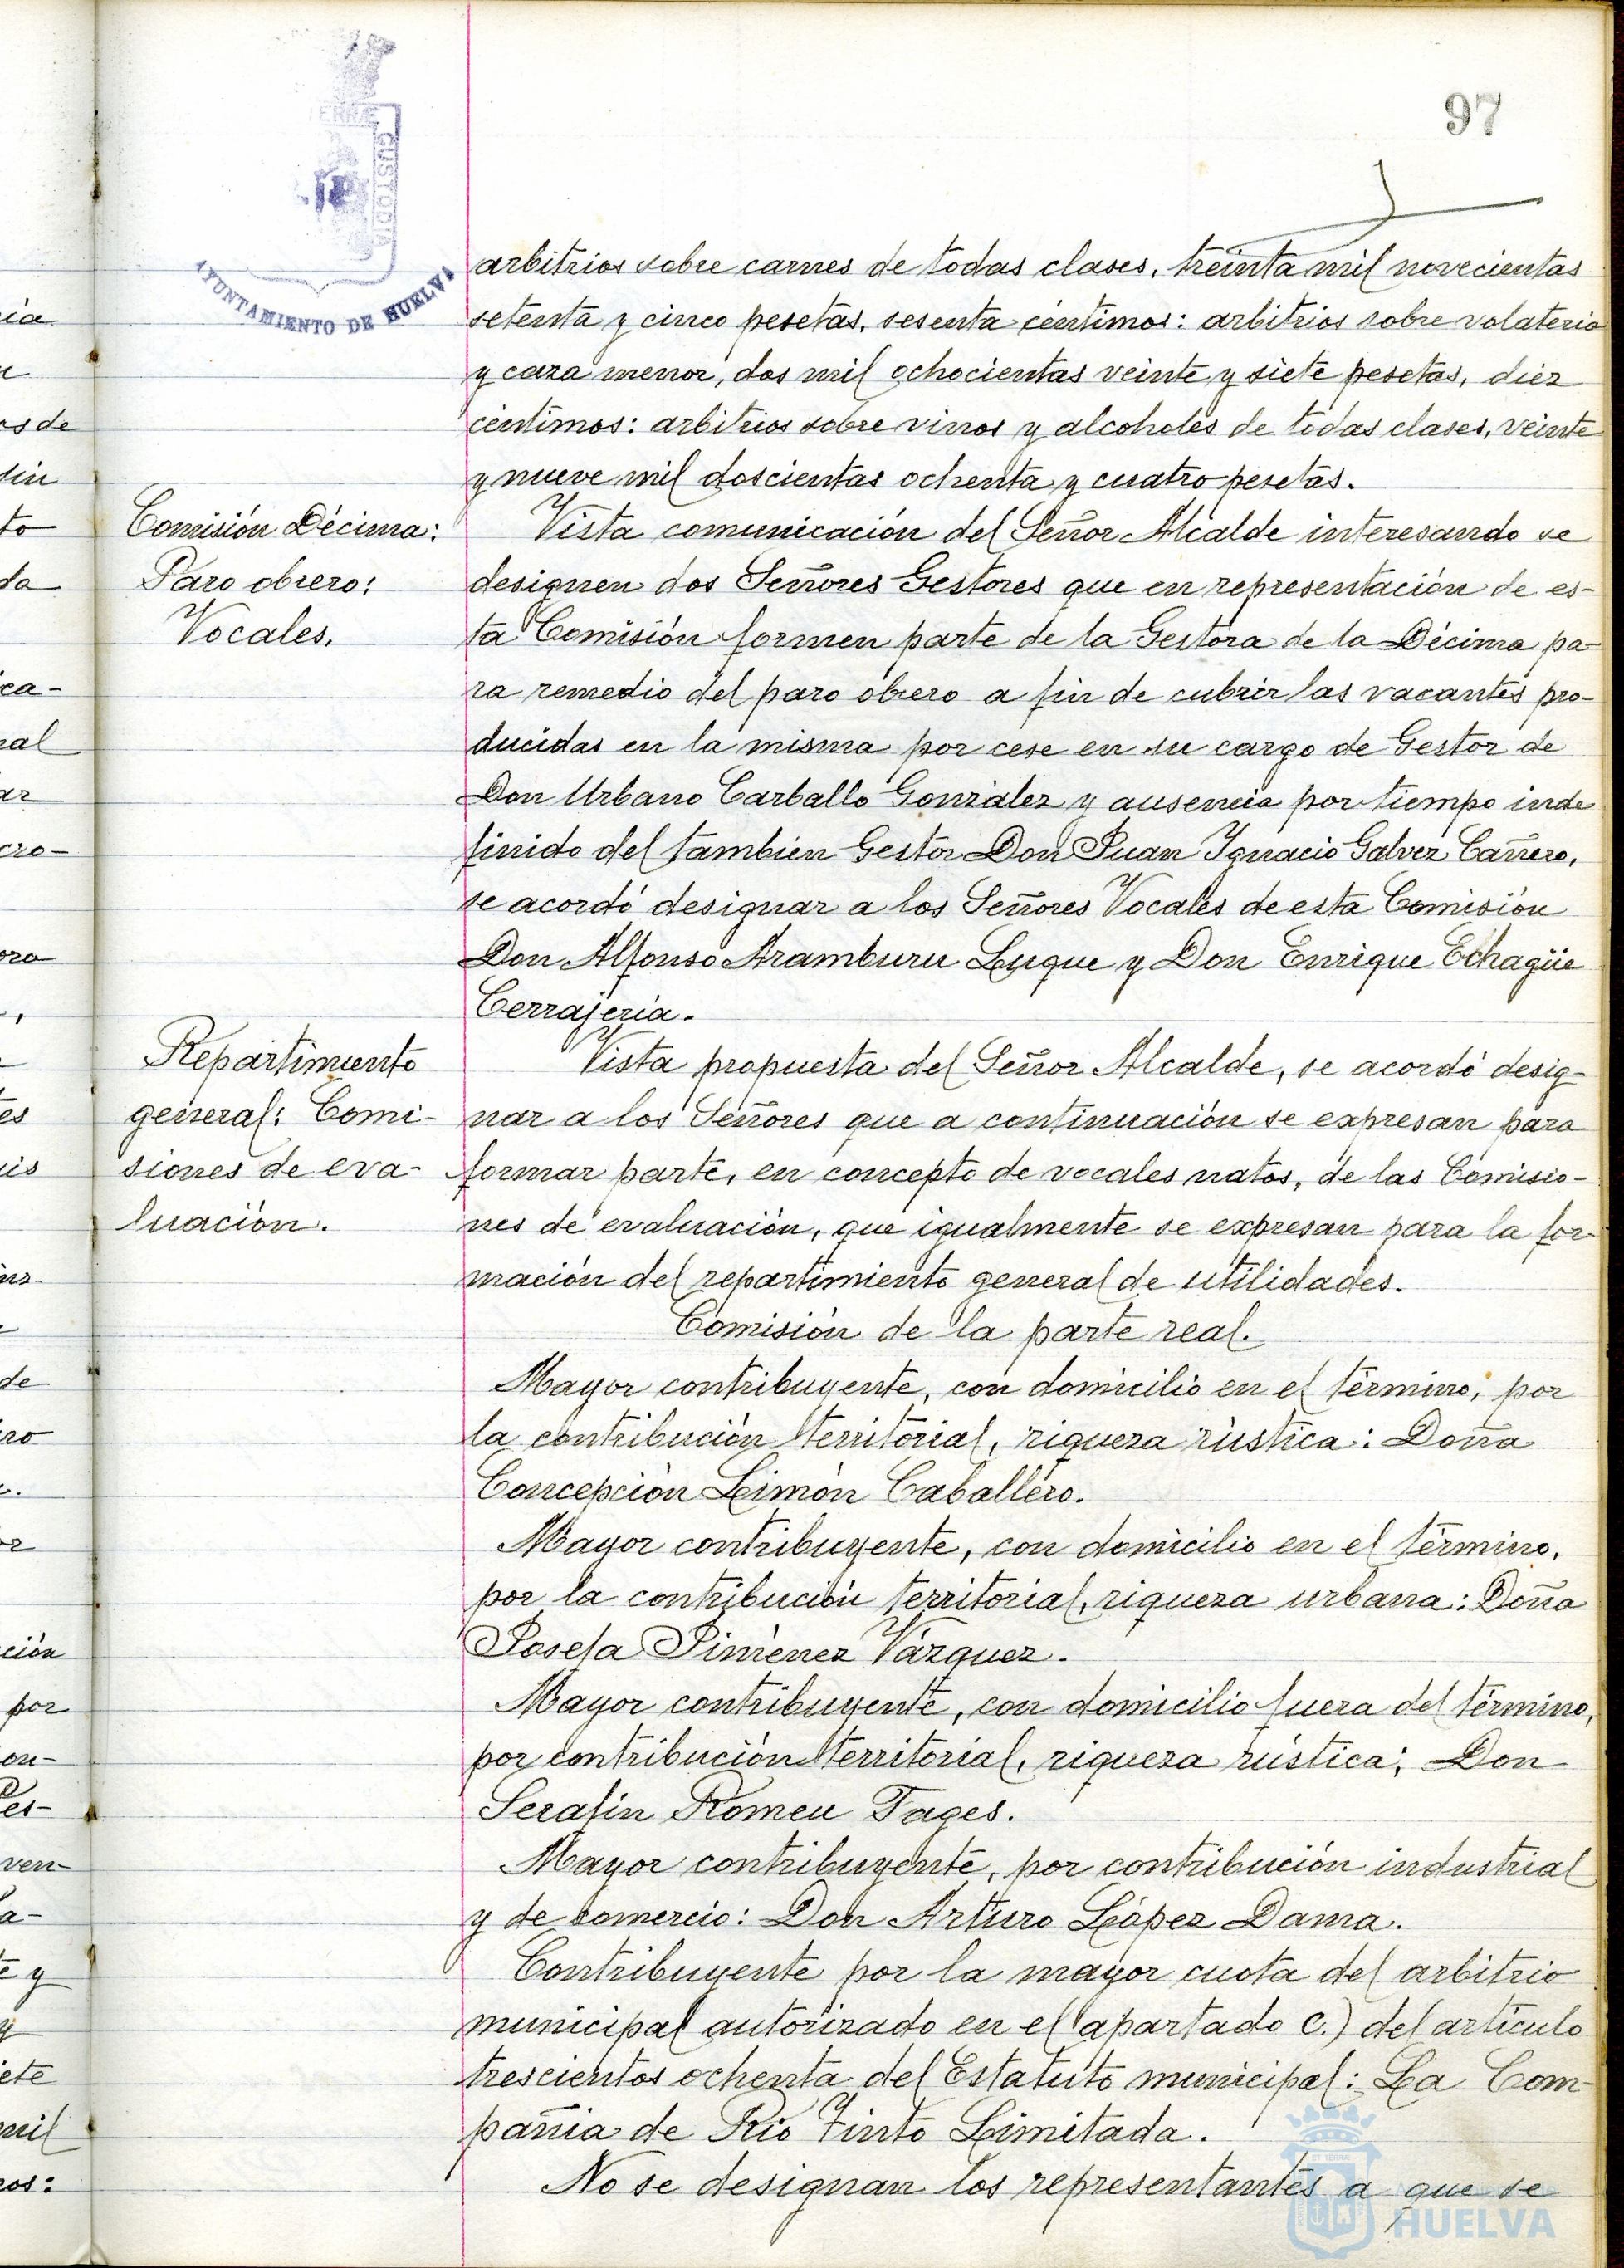 97
AYUNTAMIENTO DE HUELVA
CUSTODIA
arbitrios sobre carnes de todas clases, treinta mil novecientas
setenta y cinco pesetas, sesenta céntimos: arbitrios sobre volateria
y caza menor, dos mil ochocientas veinte y siete pesetas, diez
céntimos: arbitrios sobre vinos y alcoholes de todas clases, veinte
y nueve mil doscientas ochenta y cuatro pesetas.
Comisión Décima:
Paro obrero:
Vocales.
Vista comunicación del Señor Alcalde interesando se
designen dos Señores Gestores que en representación de es-
ta Comisión formen parte de la Gestora de la Décima pa-
ra remedio del paro obrero a fin de cubrir las vacantes pro-
ducidas en la misma por cese en su cargo de Gestor de
Don Urbano Carballo González y ausencia por tiempo inde
finido del también Gestor Don Juan Ignacio Galvez Cañero,
se acordó designar a los Señores Vocales de esta Comisión
Don Alfonso Aramburu Luque y Don Enrique Echagüe
Cerrajeria.
Repartimiento
general: Comi-
siones de eva-
luación.
Vista propuesta del Señor Alcalde, se acordó desig-
nar a los Señores que a continuación se expresan para
formar parte, en concepto de vocales natos, de las Comisio-
nes de evaluación, que igualmente se expresan para la for-
mación del repartimiento general de utilidades.
Comisión de la parte real.
Mayor contribuyente, con domicilio en el término, por
la contribución territorial, riqueza rústica: Doña
Concepción Limón Caballero.
Mayor contribuyente, con domicilio en el término,
por la contribución territorial, riqueza urbana: Doña
Josefa Jiménez Vázquez.
Mayor contribuyente, con domicilio fuera del término,
por contribución territorial, riqueza rústica: Don
Serafin Romeu Fages.
Mayor contribuyente, por contribución industrial
y de comercio: Don Arturo López Dama.
Contribuyente por la mayor cuota del arbitrio
municipal autorizado en el apartado C.) del artículo
trescientos ochenta del Estatuto municipal: La Com-
pañia de Rio Tinto Limitada.
No se designan los representantes a que se
HUELVA